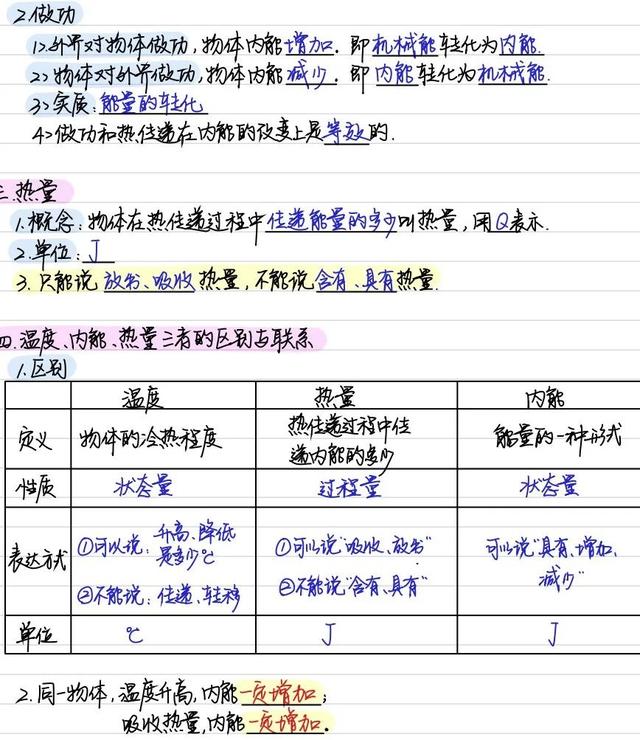 2.做功
1>.外界对物体做功,物体内能增加.即机械能转化为内能.
2>.物体对外界做功,物体内能减少.即内能转化为机械能.
3>实质:能量的转化
4>做功和热传递在内能的改变上是等效的.
三.热量
1.概念:物体在热传递过程中传递能量的多少叫热量,用Q表示.
2.单位:J
3.只能说放出、吸收热量,不能说含有、具有热量.
四.温度、内能、热量三者的区别与联系
1.区别
温度 热量 内能
定义 物体的冷热程度 热传递过程中传递内能的多少 能量的一种形式
性质 状态量 过程量 状态量
表达方式 ①可以说:升高、降低是多少℃ ②不能说:传递、转移 ①可以说"吸收、放出" ②不能说"含有、具有" 可以说"具有、增加、减少"
单位 ℃ J J
2.同一物体,温度升高,内能一定增加;
吸收热量,内能一定增加.